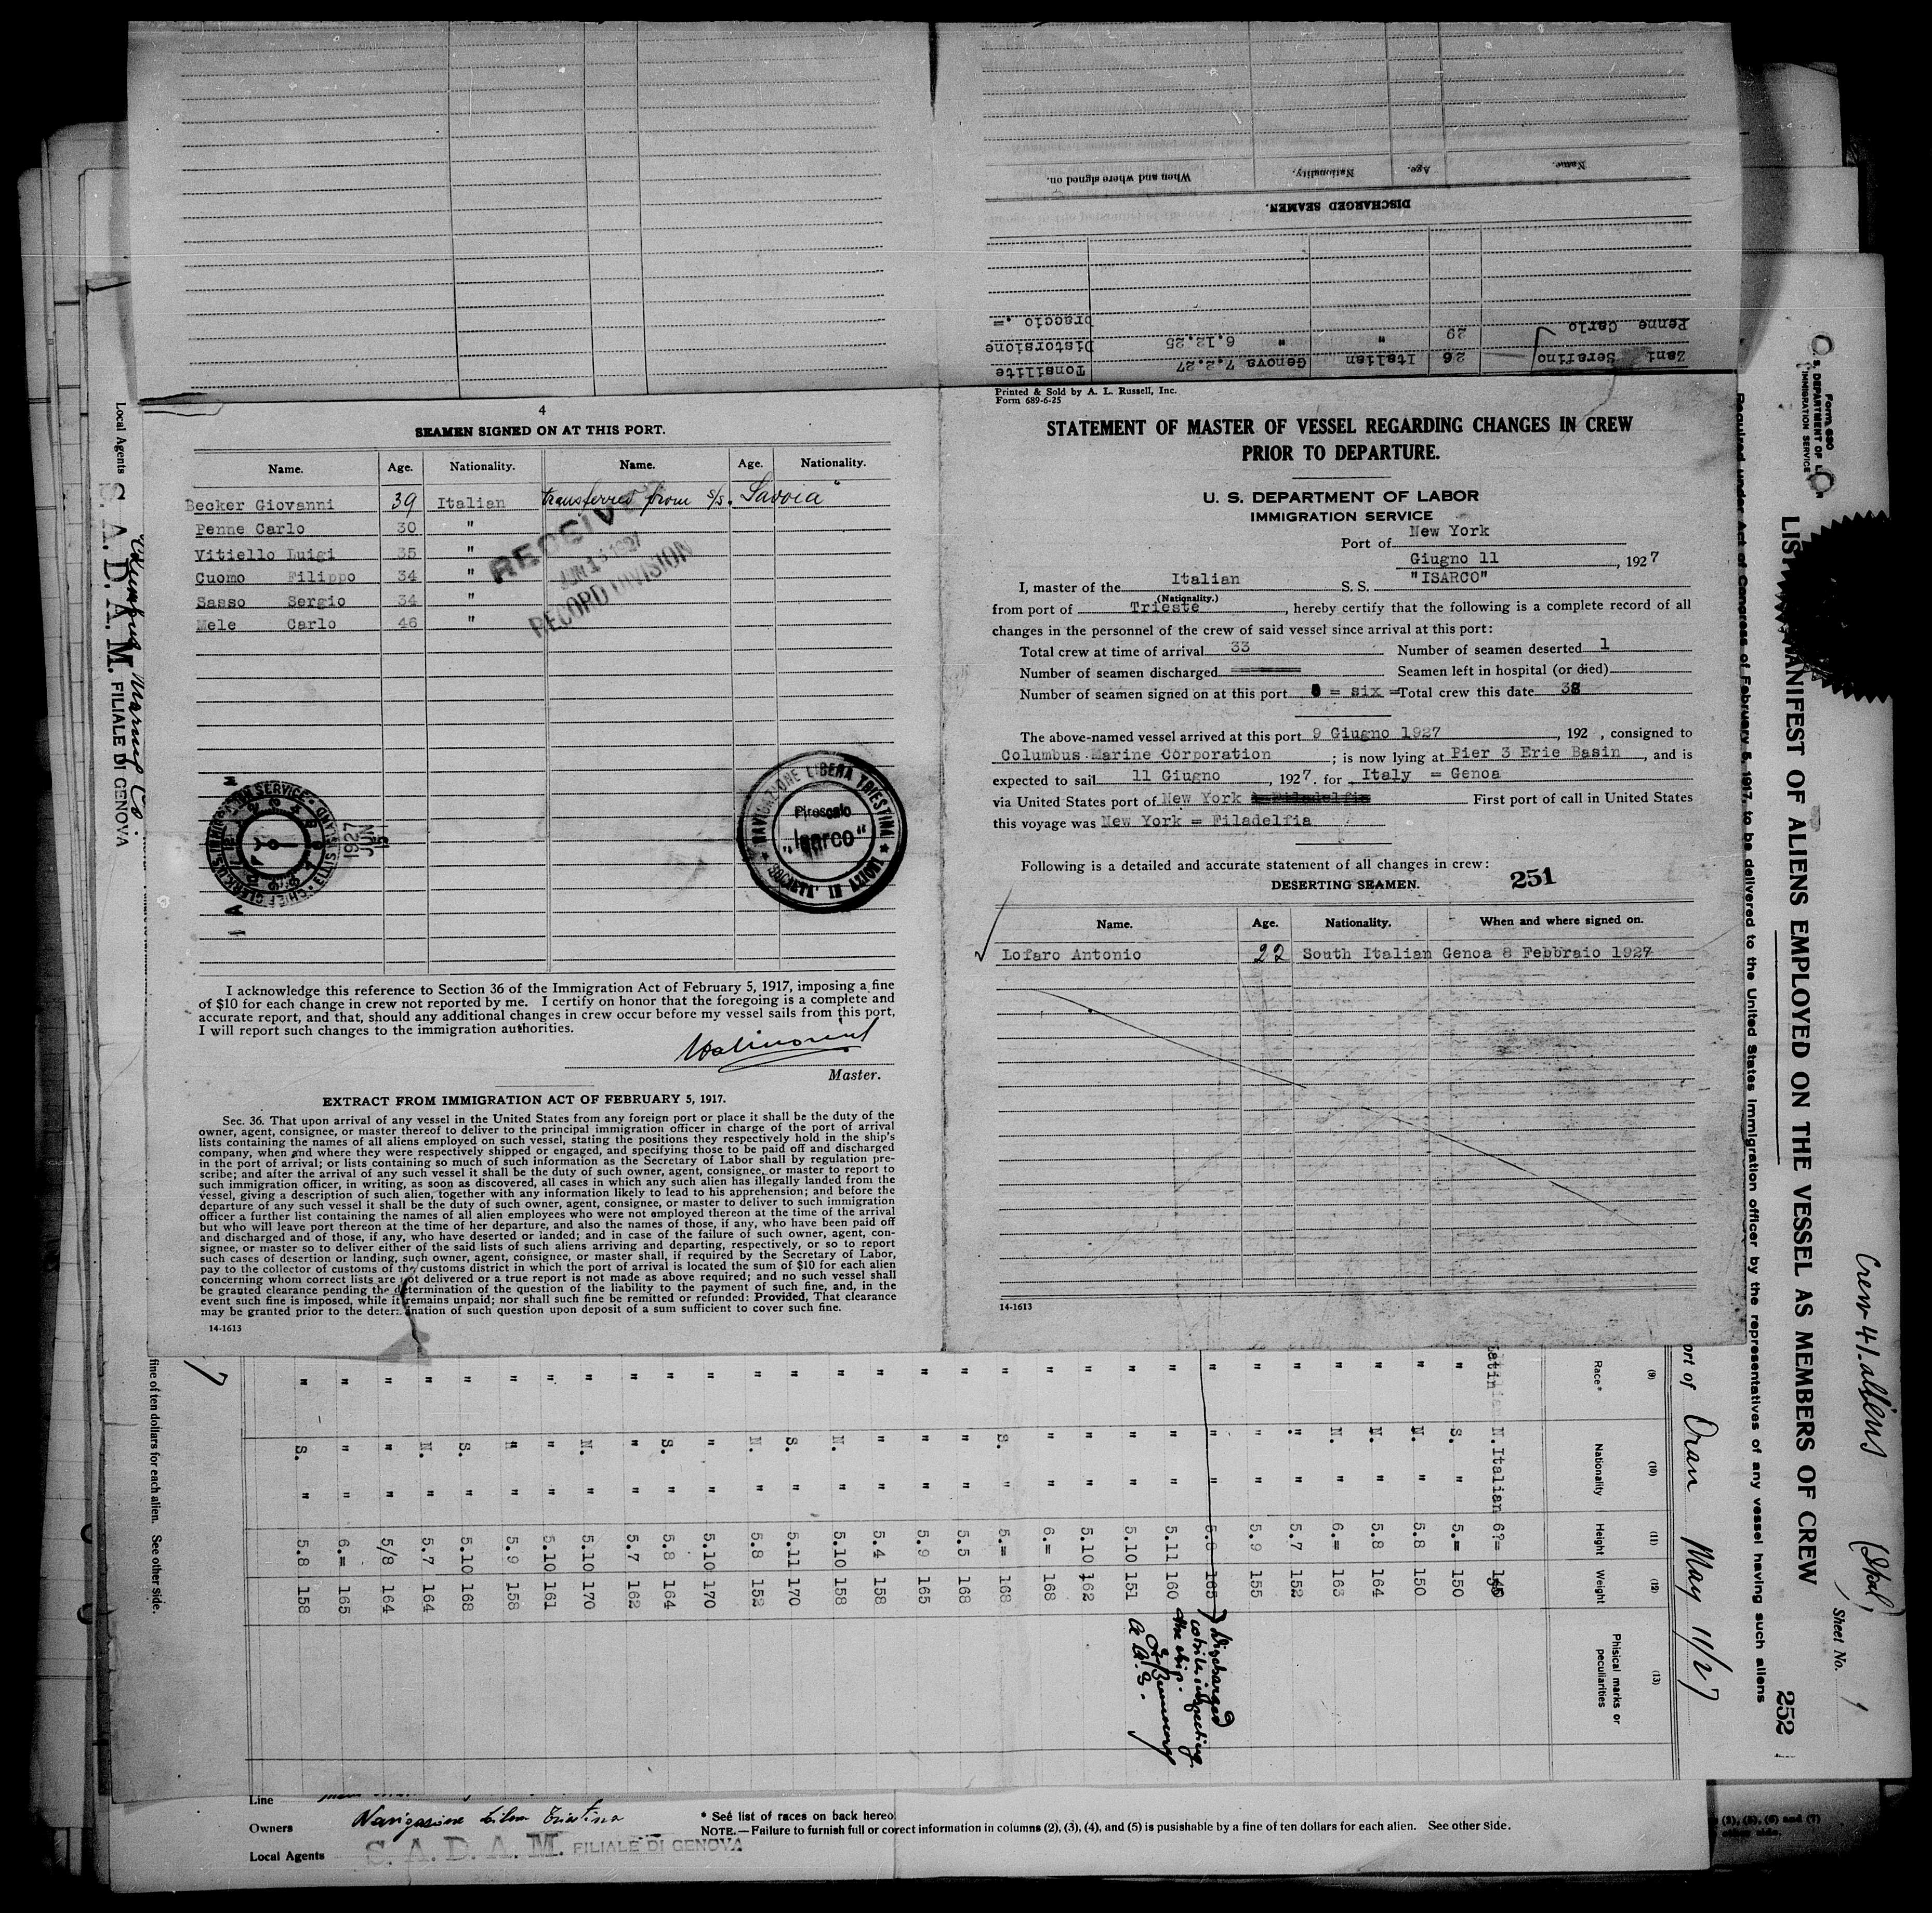 When and where signed on.
Nationality.
Age.
Name.
DISCHARGED SEAMEN.
Zani Serafino 26 Italian Genova 7.2.27 Tonsilite
Penne Carlo 29 " " 6.12.25 Distorsione
braccio .=
4
SEAMEN SIGNED ON AT THIS PORT.
Name. Age. Nationality. Name. Age. Nationality.
Becker Giovanni 39 Italian transferred from s/s. "Savoia"
Penne Carlo 30 "
Vitiello Luigi 35 "
Cuomo Filippo 34 "
Sasso Sergio 34 "
Mele Carlo 46 "
RECEIVED
JUN 15 1927
RECORD DIVISION
1927
JUN
NAVIGAZIONE LIBERA TRIESTINA
Piroscafo
„Isarco"
I acknowledge this reference to Section 36 of the Immigration Act of February 5, 1917, imposing a fine
of $10 for each change in crew not reported by me. I certify on honor that the foregoing is a complete and
accurate report, and that, should any additional changes in crew occur before my vessel sails from this port,
I will report such changes to the immigration authorities.
Master.
EXTRACT FROM IMMIGRATION ACT OF FEBRUARY 5, 1917.
Sec. 36. That upon arrival of any vessel in the United States from any foreign port or place it shall be the duty of the
owner, agent, consignee, or master thereof to deliver to the principal immigration officer in charge of the port of arrival
lists containing the names of all aliens employed on such vessel, stating the positions they respectively hold in the ship's
company, when and where they were respectively shipped or engaged, and specifying those to be paid off and discharged
in the port of arrival; or lists containing so much of such information as the Secretary of Labor shall by regulation pre-
scribe; and after the arrival of any such vessel it shall be the duty of such owner, agent, consignee, or master to report to
such immigration officer, in writing, as soon as discovered, all cases in which any such alien has illegally landed from the
vessel, giving a description of such alien, together with any information likely to lead to his apprehension; and before the
departure of any such vessel it shall be the duty of such owner, agent, consignee, or master to deliver to such immigration
officer a further list containing the names of all alien employees who were not employed thereon at the time of the arrival
but who will leave port thereon at the time of her departure, and also the names of those, if any, who have been paid off
and discharged and of those, if any, who have deserted or landed; and in case of the failure of such owner, agent, con-
signee, or master so to deliver either of the said lists of such aliens arriving and departing, respectively, or so to report
such cases of desertion or landing, such owner, agent, consignee, or master shall, if required by the Secretary of Labor,
pay to the collector of customs of the customs district in which the port of arrival is located the sum of $10 for each alien
concerning whom correct lists are not delivered or a true report is not made as above required; and no such vessel shall
be granted clearance pending the determination of the question of the liability to the payment of such fine, and, in the
event such fine is imposed, while it remains unpaid; nor shall such fine be remitted or refunded: Provided, That clearance
may be granted prior to the determination of such question upon deposit of a sum sufficient to cover such fine.
14-1613
Printed & Sold by A. L. Russell, Inc.
Form 689-6-25
STATEMENT OF MASTER OF VESSEL REGARDING CHANGES IN CREW
PRIOR TO DEPARTURE.
U. S. DEPARTMENT OF LABOR
IMMIGRATION SERVICE
Port of New York
Giugno 11, 1927
I, master of the Italian S. S. "ISARCO"
(Nationality.)
from port of Trieste, hereby certify that the following is a complete record of all
changes in the personnel of the crew of said vessel since arrival at this port:
Total crew at time of arrival 33 Number of seamen deserted 1
Number of seamen discharged Seamen left in hospital (or died)
Number of seamen signed on at this port = six = Total crew this date 38
The above-named vessel arrived at this port 9 Giugno 1927, 192 , consigned to
Columbus Marine Corporation ; is now lying at Pier 3 Erie Basin, and is
expected to sail 11 Giugno, 1927. for Italy = Genoa
via United States port of New York First port of call in United States
this voyage was New York = Filadelfia
Following is a detailed and accurate statement of all changes in crew:
DESERTING SEAMEN.
251
Name. Age. Nationality. When and where signed on.
Lofaro Antonio 22 South Italian Genoa 8 Febbraio 1927
14-1613
Form 680
U. S. DEPARTMENT OF LABOR
IMMIGRATION SERVICE
LIST MANIFEST OF ALIENS EMPLOYED ON THE VESSEL AS MEMBERS OF CREW
252
Required under Act of Congress of February 5, 1917, to be delivered to the United States immigration officer by the representatives of any vessel having such aliens
Crew 41. aliens
Sheet No. 1
port of Oran May 11/27
(9) (10) (11) (12) (13)
Race* Nationality Height Weight Phisical marks or peculiarities
Latin N. Italian 6?=
" S. " 5.= 150
" N. " 5.8 150
" N. " 5.8 164
" N. " 6.= 163
" " " 5.7 152
" " " 5.9 155
" " " 5.8 165 Discharged while inspecting the ship.
" " " 5.11 160
" " " 5.10 151
" " " 5.10 162
" " " 6.= 168
" S. " 5.= 168
" " " 5.5 168
" " " 5.9 165
" " " 5.4 158
" N. " 5.10 158
" S. " 5.11 170
" N. " 5.8 152
" " " 5.10 170
" S. " 5.8 164
" " " 5.7 162
" N. " 5.10 170
" " " 5.10 161
" " " 5.9 158
" S. " 5.10 168
" N. " 5.7 164
" " " 5/8 164
" " " 6.= 165
" S. " 5.8 158
Local Agents S. A. D. A. M. FILIALE DI GENOVA
Columbus Marine Co
fine of ten dollars for each alien. See other side.
Line
Owners Navigazione Libera Triestina
Local Agents S. A. D. A. M. FILIALE DI GENOVA
* See list of races on back hereo
NOTE.—Failure to furnish full or corect information in columns (2), (3), (4), and (5) is pusishable by a fine of ten dollars for each alien. See other side.
(3), (5), (6) and (7)